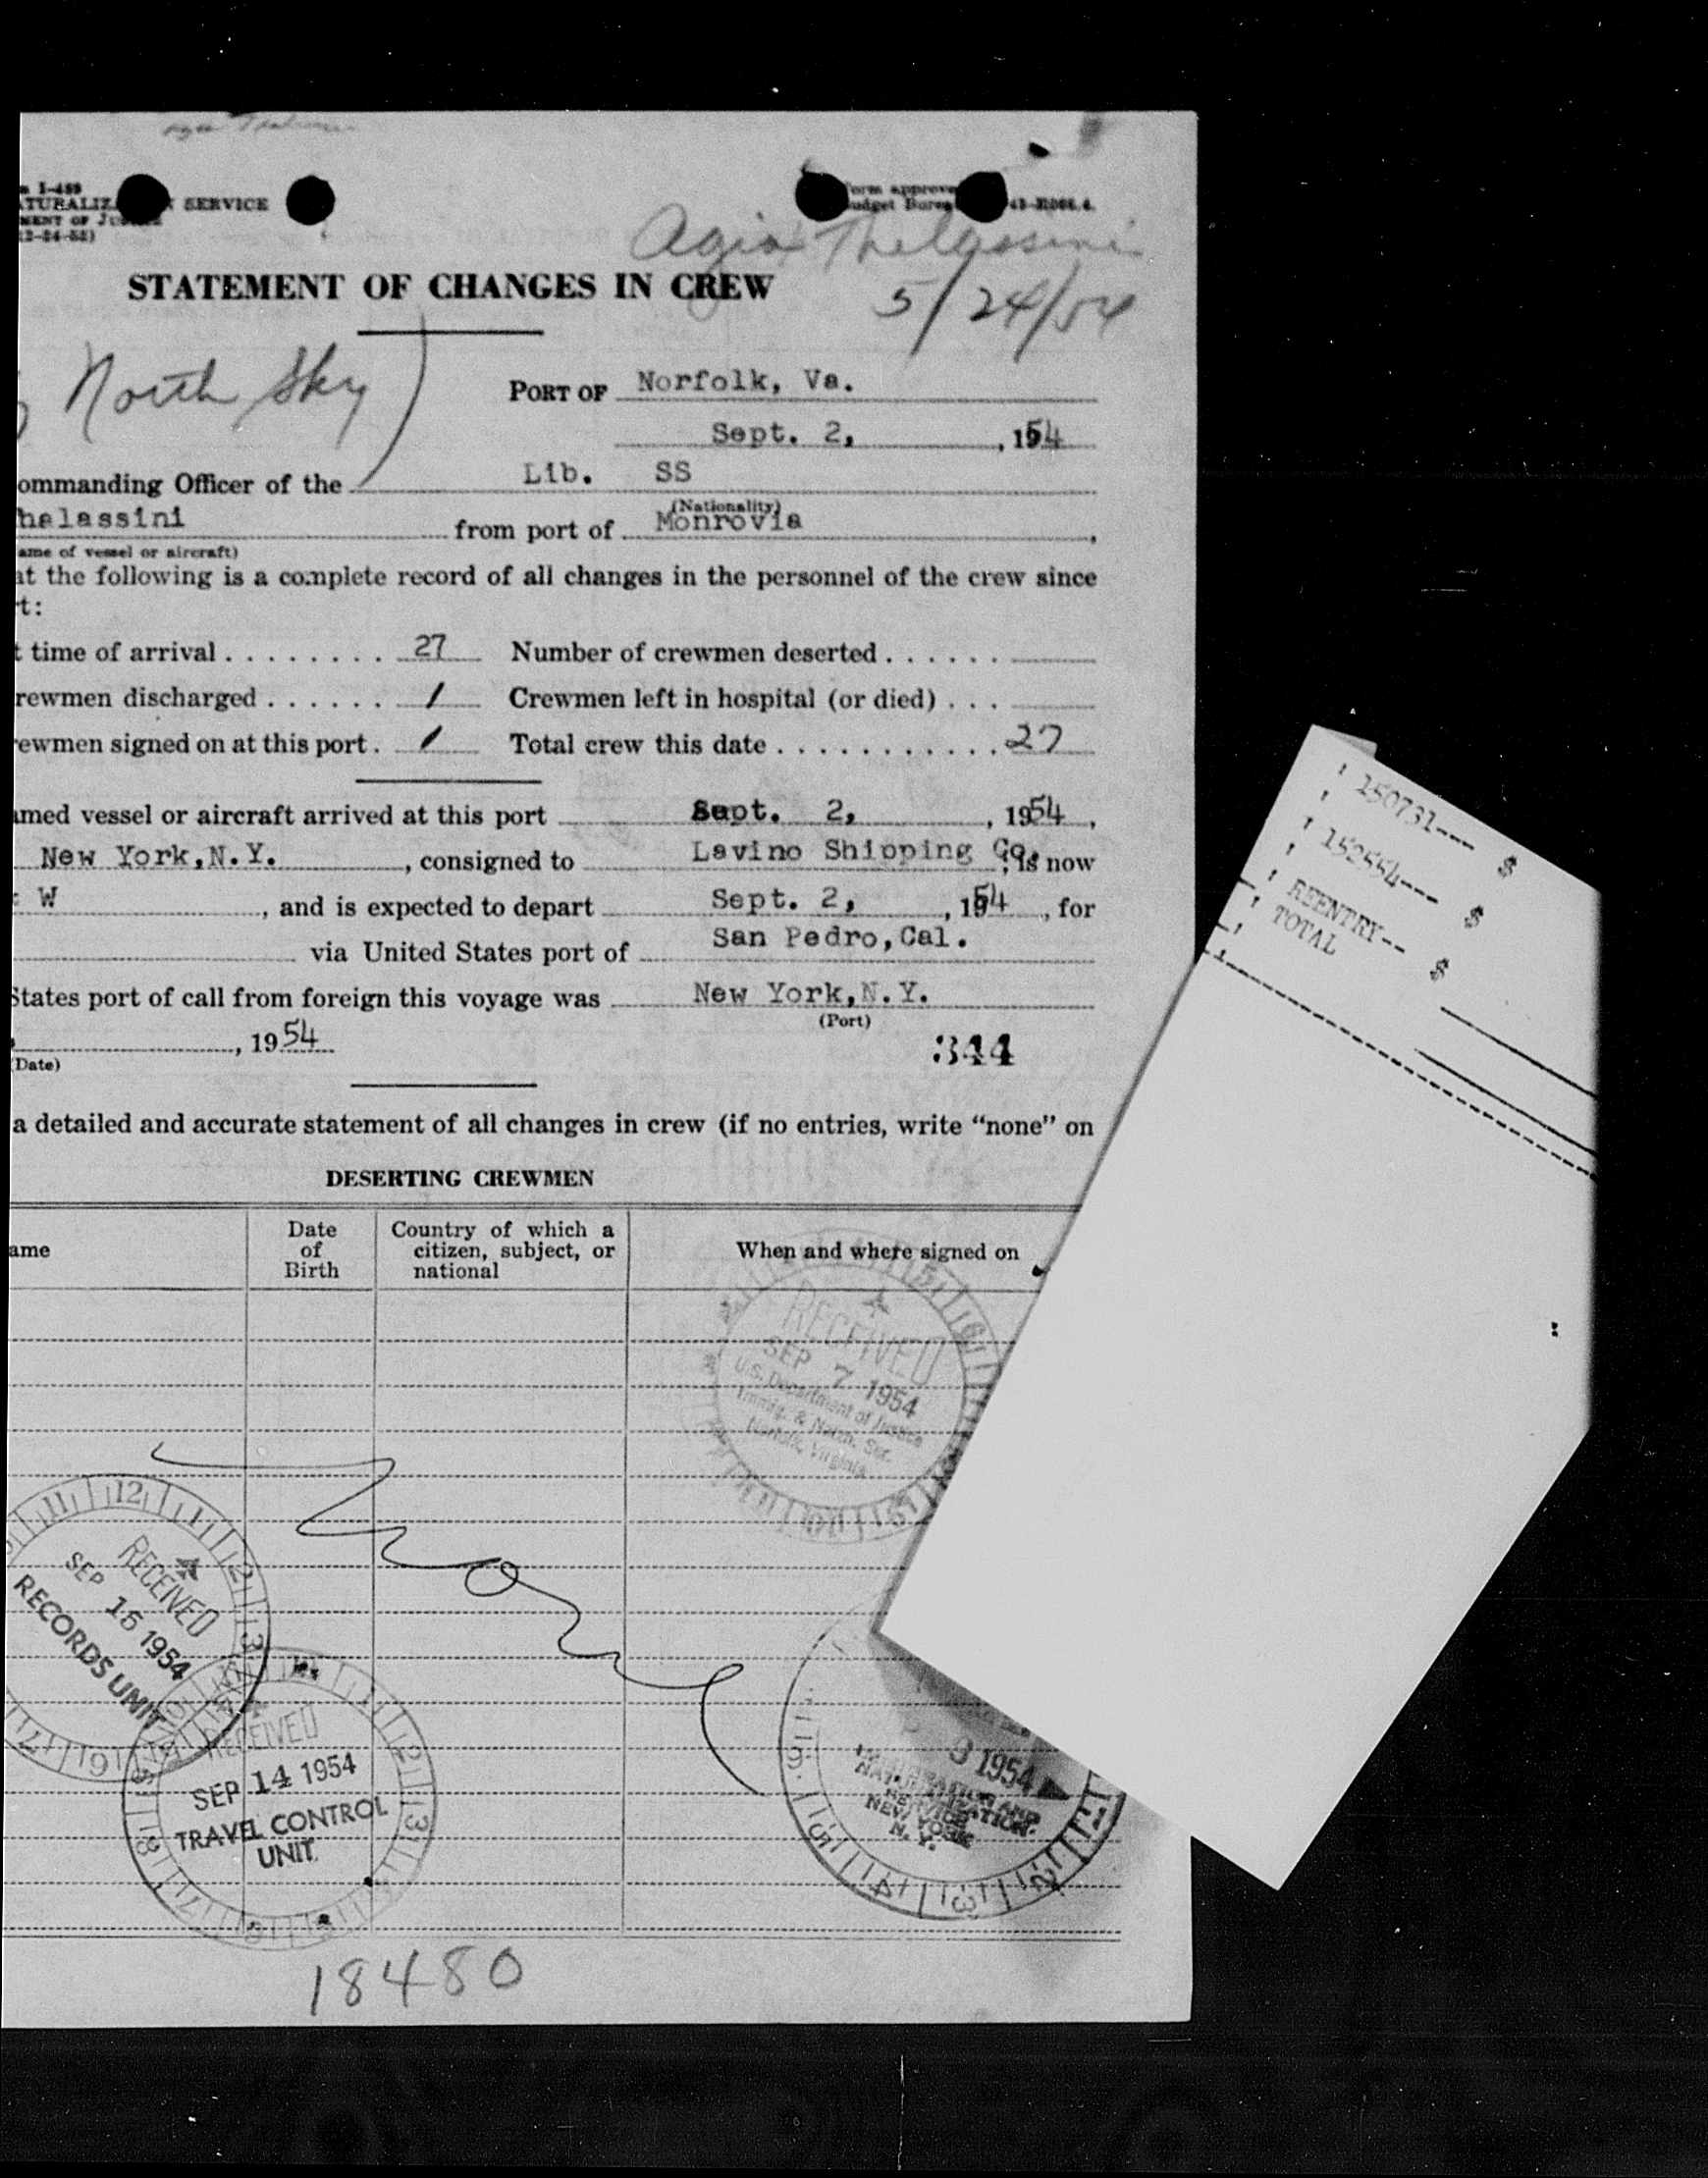 I-489
SERVICE
Form approved
Budget Bureau
43-R065.4.
Agia Thelassini
STATEMENT OF CHANGES IN CREW
5/24/54
North Sky)
PORT OF Norfolk, Va.
Sept. 2, , 1954
ommanding Officer of the Lib. SS
(Nationality)
halassini from port of Monrovia ,
ame of vessel or aircraft)
at the following is a complete record of all changes in the personnel of the crew since
t:
t time of arrival . . . . . . . . 27 Number of crewmen deserted . . . . . .
rewmen discharged . . . . . . 1 Crewmen left in hospital (or died) . . .
ewmen signed on at this port . 1 Total crew this date . . . . . . . . . . . 27
amed vessel or aircraft arrived at this port Sept. 2, , 1954 ,
New York, N.Y. , consigned to Lavino Shipping Co. , is now
: W , and is expected to depart Sept. 2, , 1954 , for
via United States port of San Pedro, Cal.
States port of call from foreign this voyage was New York, N.Y.
(Port)
, 1954
(Date)
344
a detailed and accurate statement of all changes in crew (if no entries, write “none” on
DESERTING CREWMEN
ame
Date of Birth
Country of which a citizen, subject, or national
When and where signed on
RECEIVED
SEP 7 1954
U.S. Department of Justice
Immig. & Natzn. Ser.
Norfolk, Virginia
None
RECEIVED
SEP 16 1954
RECORDS UNIT
RECEIVED
SEP 14 1954
TRAVEL CONTROL
UNIT
9 1954
IMMIGRATION AND
NATURALIZATION
SERVICE
NEW YORK
N. Y.
18480
150731--- $
152554--- $
REENTRY-- $
TOTAL